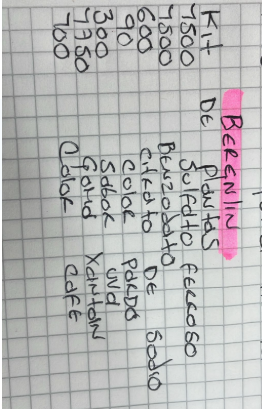 BERENLIN
Kit DE plantas
7500 Sulfato ferroso
7500 Benzoato DE Sodio
600 citrato
90 color pardo
300 Sabor uva
7750 Goma Xantan
700 Color cafe